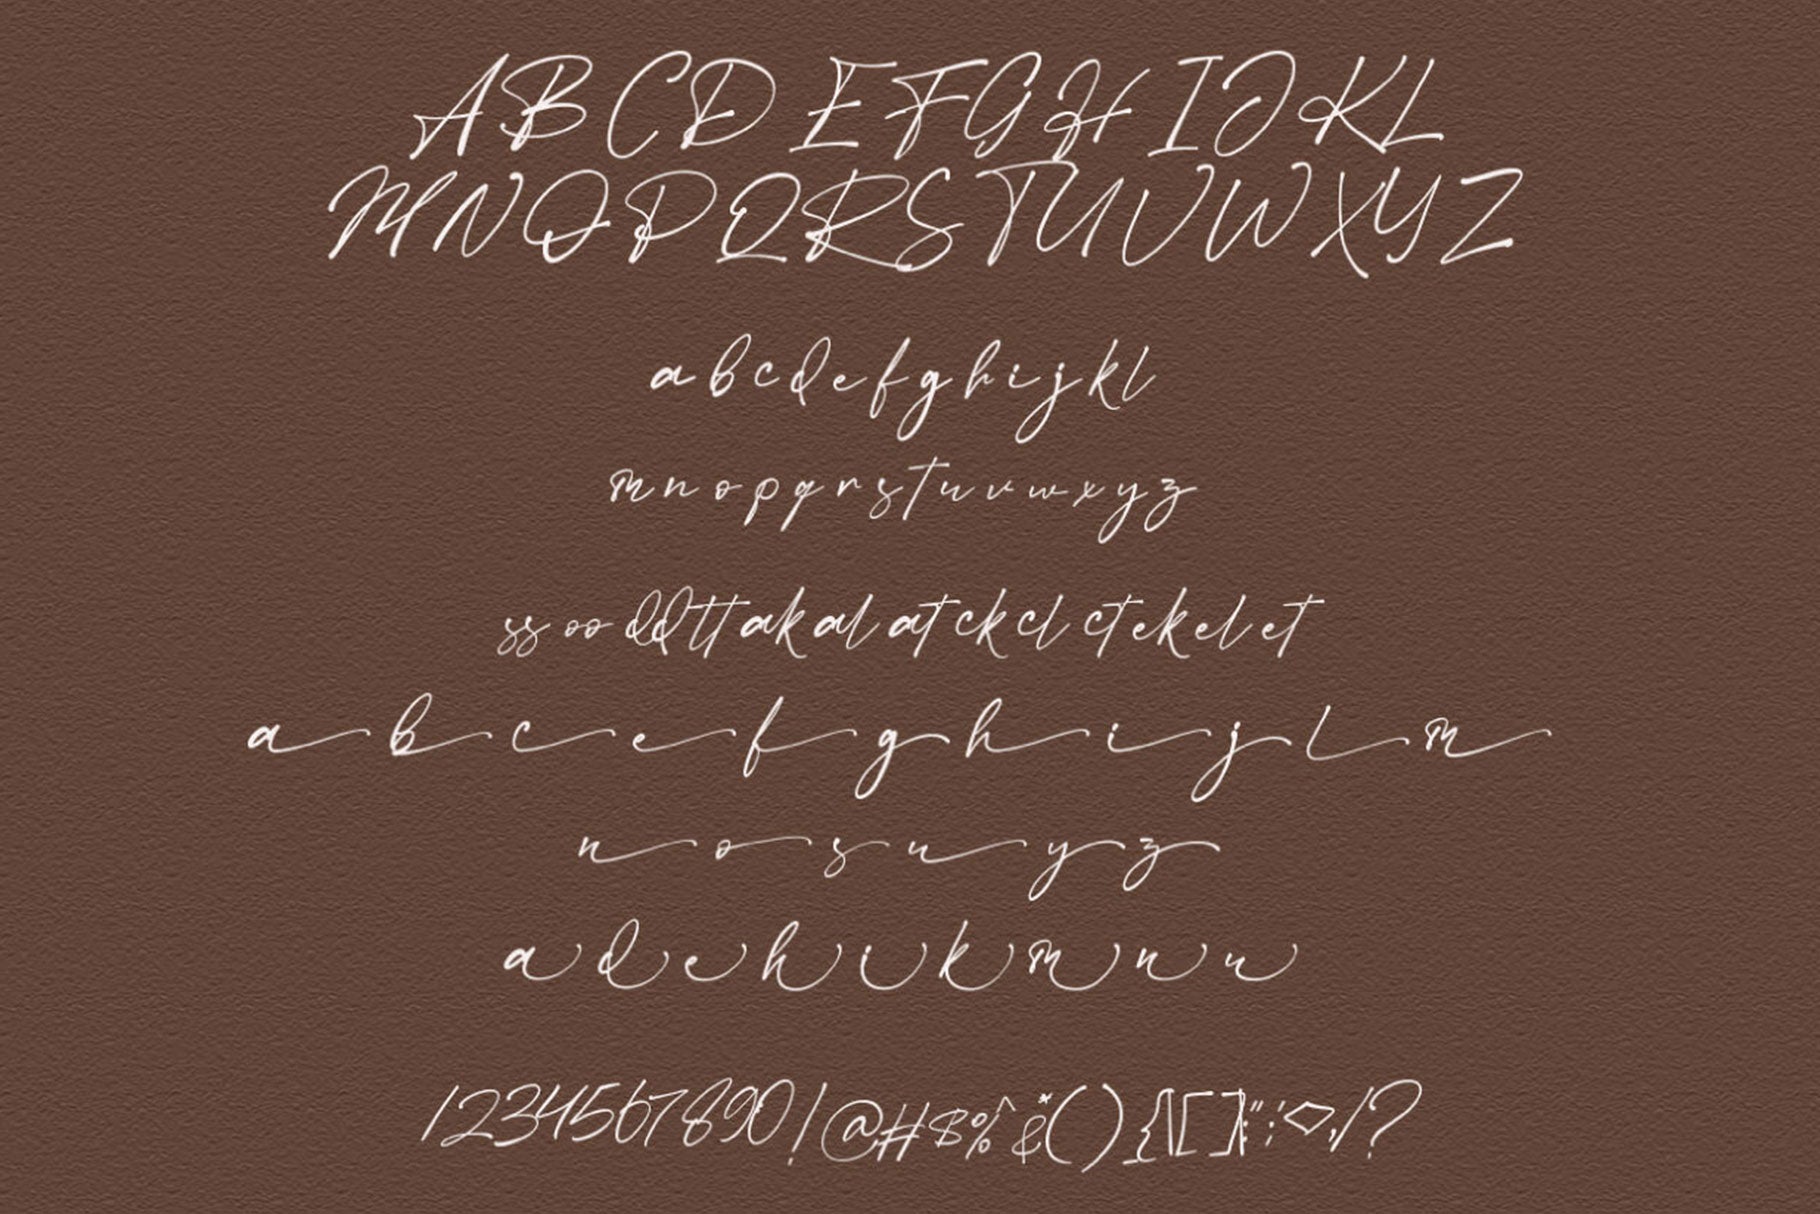 ABCDEFGHIJKL
MNOPQRSTUVWXYZ
abcdefghijkl
mnopqrstuvwxyz
ss oo dd tt ak al at ck cl ct ek el et
a b c e f g h i j l m
n o s u y z
a d e h i k m n u
1234567890!@#$%^&*(){}[]